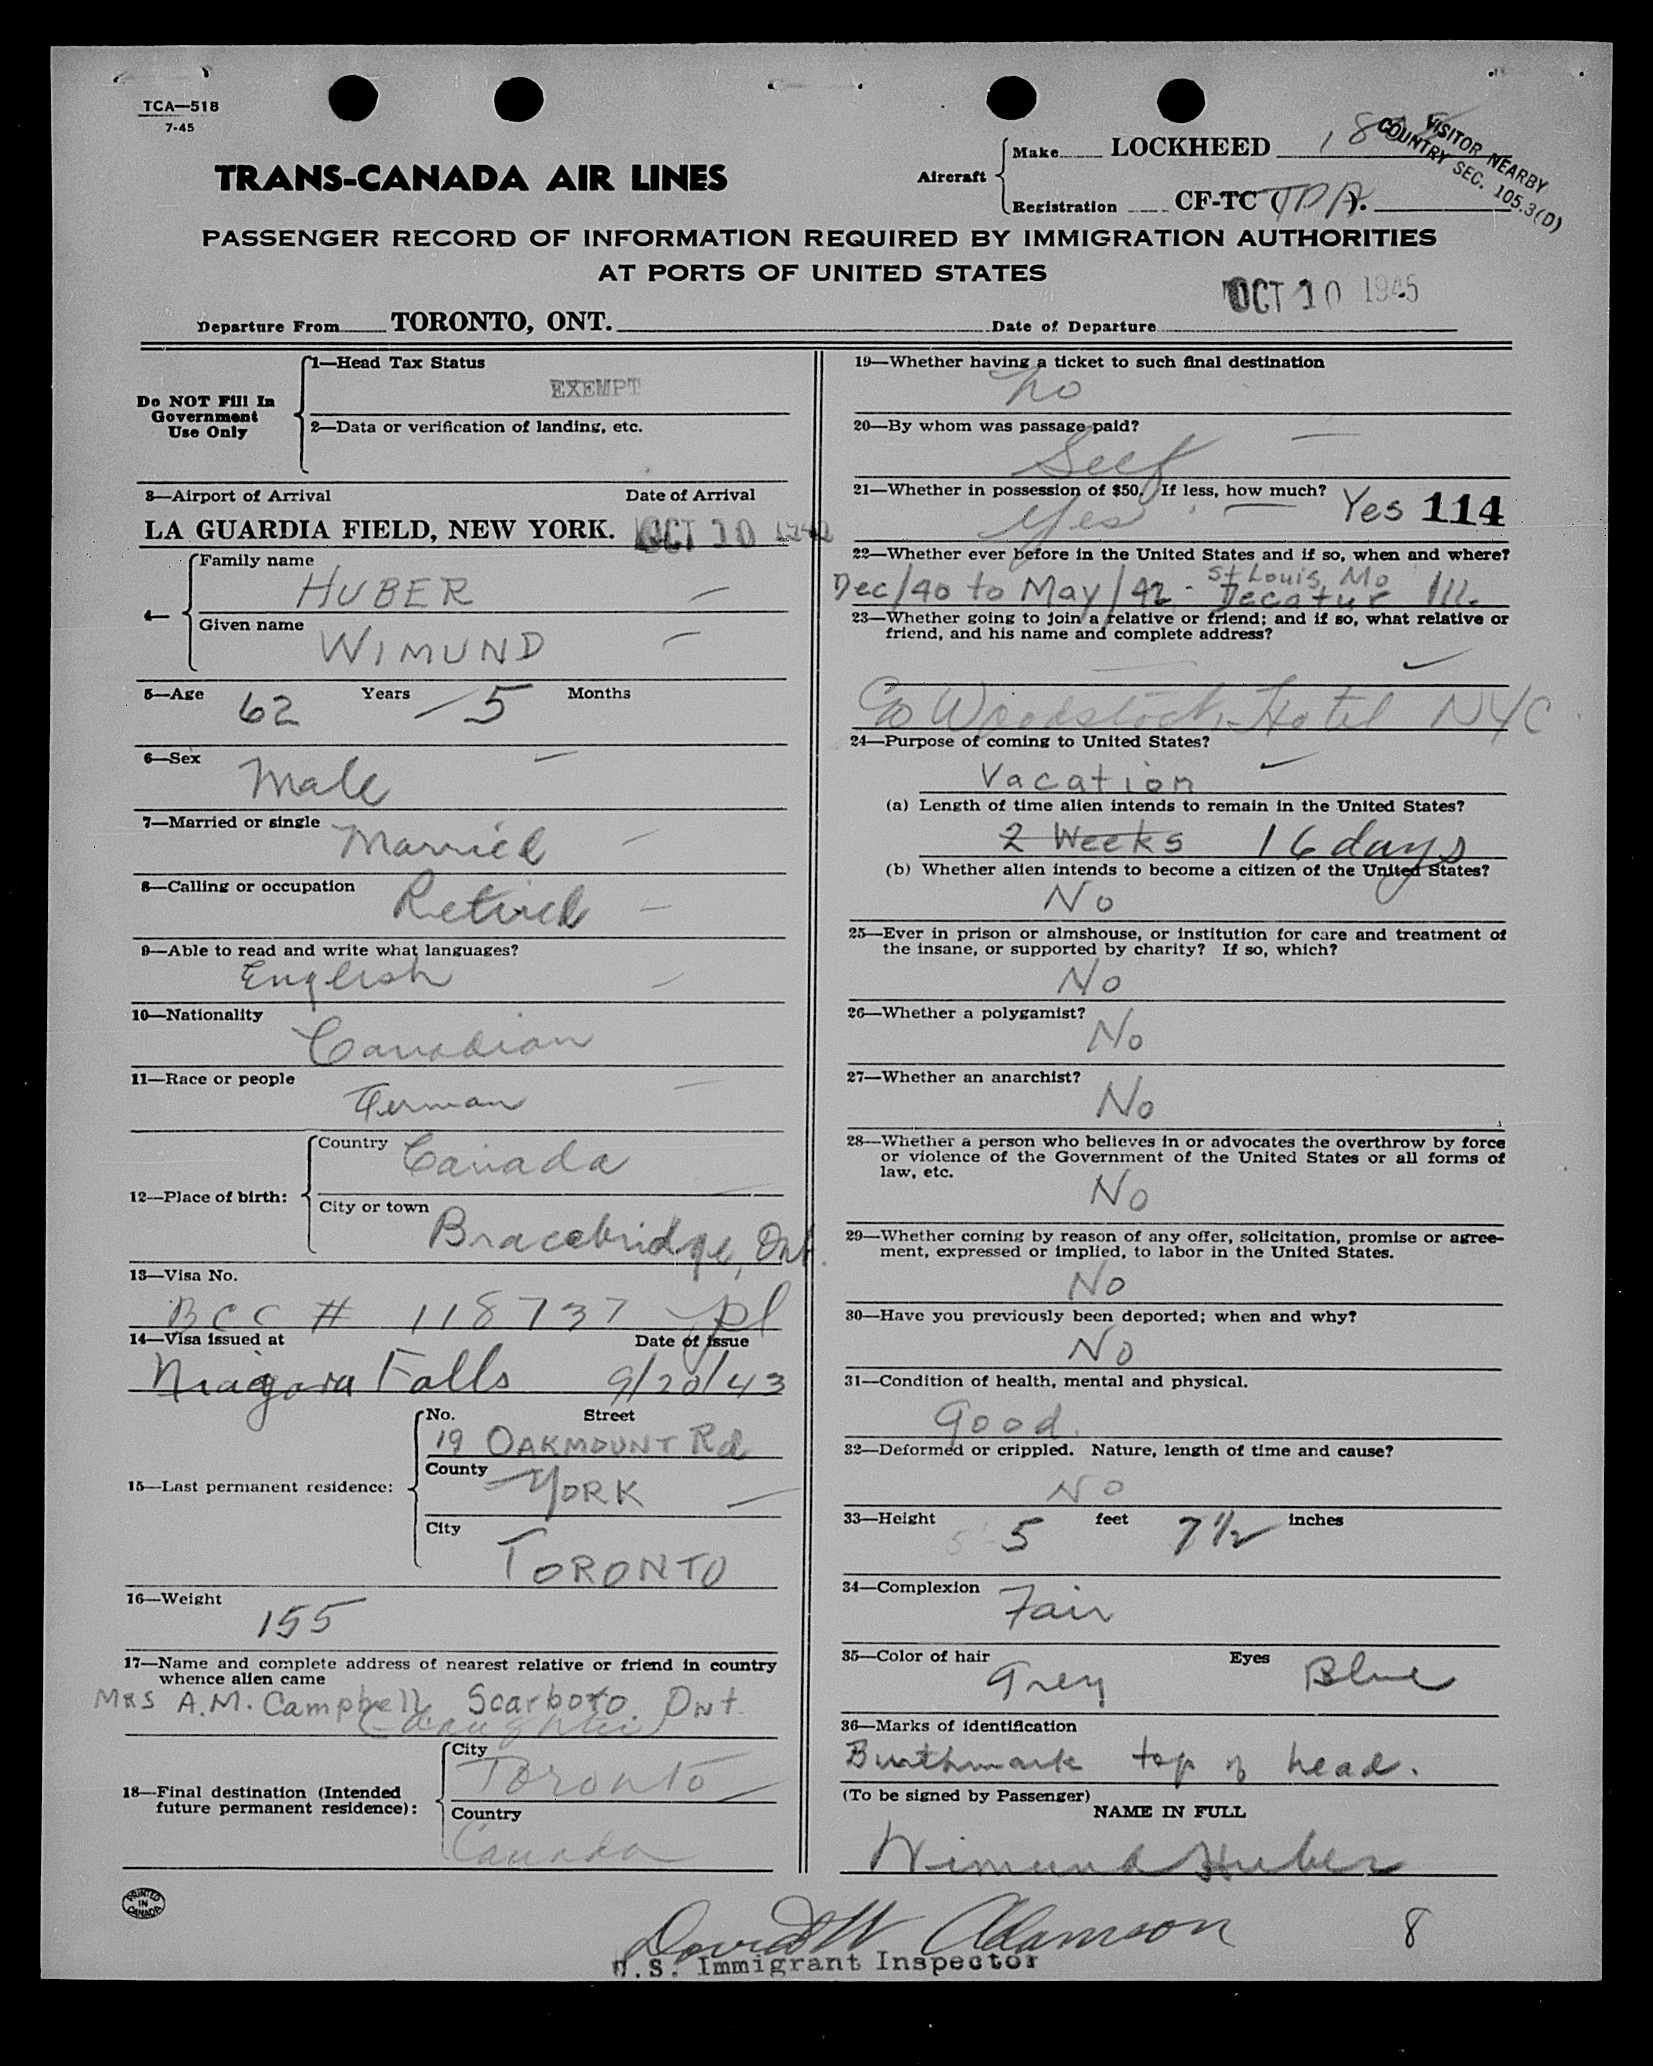 TCA—518
7-45
TRANS-CANADA AIR LINES
Aircraft
Make LOCKHEED 18
Registration CF-TC
VISITOR NEARBY
COUNTRY SEC. 105.3(D)
PASSENGER RECORD OF INFORMATION REQUIRED BY IMMIGRATION AUTHORITIES
AT PORTS OF UNITED STATES
Departure From TORONTO, ONT. Date of Departure OCT 10 1945
Do NOT Fill In
Government
Use Only
1—Head Tax Status
EXEMPT
2—Data or verification of landing, etc.
3—Airport of Arrival Date of Arrival
LA GUARDIA FIELD, NEW YORK. OCT 10
4—
Family name
HUBER
Given name
WIMUND
5—Age 62 Years 5 Months
6—Sex
Male
7—Married or single
Married
8—Calling or occupation
Retired
9—Able to read and write what languages?
English
10—Nationality
Canadian
11—Race or people
German
12—Place of birth:
Country Canada
City or town
Bracebridge, Ont.
13—Visa No.
BCC # 118737
14—Visa issued at Date of issue
Niagara Falls 9/20/43
15—Last permanent residence:
No. Street
19 OAKMOUNT Rd
County
YORK
City
TORONTO
16—Weight
155
17—Name and complete address of nearest relative or friend in country
whence alien came
MRS A.M. Campbell, Scarboro. Ont
(daughter)
18—Final destination (Intended
future permanent residence):
City
Toronto
Country
Canada
19—Whether having a ticket to such final destination
no
20—By whom was passage paid?
Self
21—Whether in possession of $50. If less, how much?
Yes Yes 114
22—Whether ever before in the United States and if so, when and where?
Dec/40 to May/42 - St Louis, Mo
Decatur Ill.
23—Whether going to join a relative or friend; and if so, what relative or
friend, and his name and complete address?
C/o Woodstock Hotel NYC
24—Purpose of coming to United States?
Vacation
(a) Length of time alien intends to remain in the United States?
2 Weeks 16 days
(b) Whether alien intends to become a citizen of the United States?
No
25—Ever in prison or almshouse, or institution for care and treatment of
the insane, or supported by charity? If so, which?
No
26—Whether a polygamist?
No
27—Whether an anarchist?
No
28—Whether a person who believes in or advocates the overthrow by force
or violence of the Government of the United States or all forms of
law, etc.
No
29—Whether coming by reason of any offer, solicitation, promise or agree-
ment, expressed or implied, to labor in the United States.
No
30—Have you previously been deported; when and why?
No
31—Condition of health, mental and physical.
good.
32—Deformed or crippled. Nature, length of time and cause?
No
33—Height 5 feet 7 1/2 inches
34—Complexion
Fair
35—Color of hair Eyes
Grey Blue
36—Marks of identification
Birthmark top of head.
(To be signed by Passenger)
NAME IN FULL
Wimund Huber
PRINTED
IN
CANADA
David W Adamson 8
U.S. Immigrant Inspector